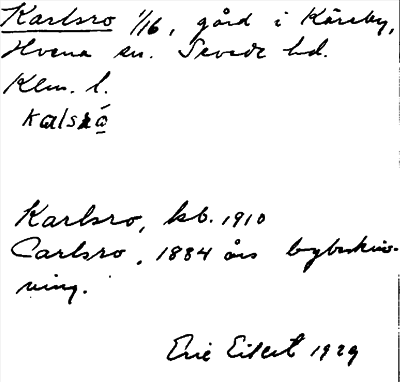 Karlsro 1/16, gård i Kåreby,
Hvena sn. Sevede hd.
Klm. l.
Kalsrå
Karlsro, kb. 1910
Carlsro, 1884 års bybeskriv-
ning.
Eric Eilert 1929